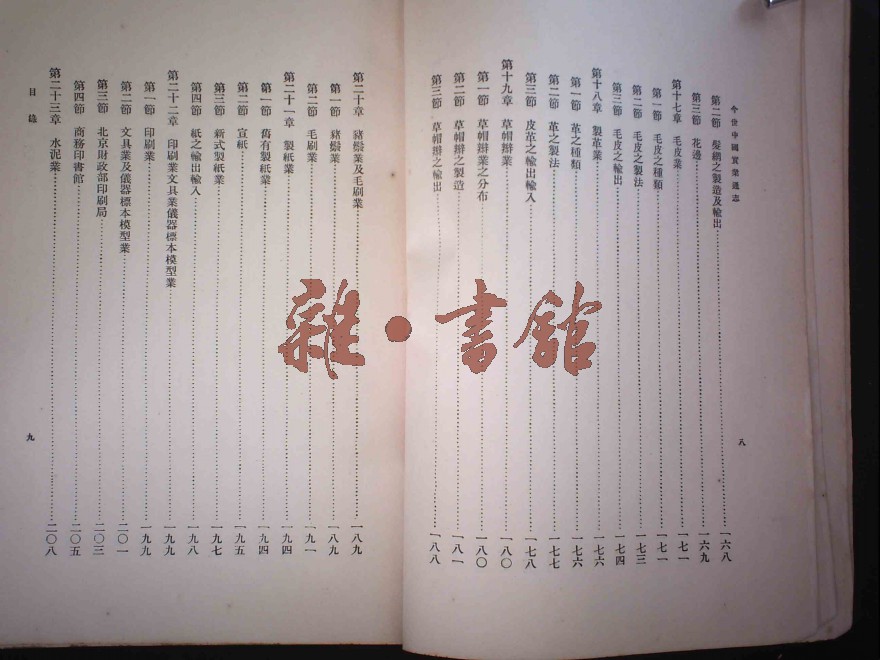 今世中國實業通志
第二節 髮網之製造及輸出……一六八
第三節 花邊……一六九
第十七章 毛皮業……一七一
第一節 毛皮之種類……一七一
第二節 毛皮之製法……一七三
第三節 毛皮之輸出……一七四
第十八章 製革業……一七六
第一節 革之種類……一七六
第二節 革之製法……一七七
第三節 皮革之輸出輸入……一七八
第十九章 草帽辮業……一八〇
第一節 草帽辮業之分布……一八〇
第二節 草帽辮之製造……一八一
第三節 草帽辮之輸出……一八八
八
第二十章 豬鬃業及毛刷業……一八九
第一節 豬鬃業……一八九
第二節 毛刷業……一九一
第二十一章 製紙業……一九四
第一節 舊有製紙業……一九四
第二節 宣紙……一九五
第三節 新式製紙業……一九七
第四節 紙之輸出輸入……一九八
第二十二章 印刷業文具業儀器標本模型業……一九九
第一節 印刷業……一九九
第二節 文具業及儀器標本模型業……二〇一
第三節 北京財政部印刷局……二〇三
第四節 商務印書館……二〇五
第二十三章 水泥業……二〇八
目錄
九
雜·書館